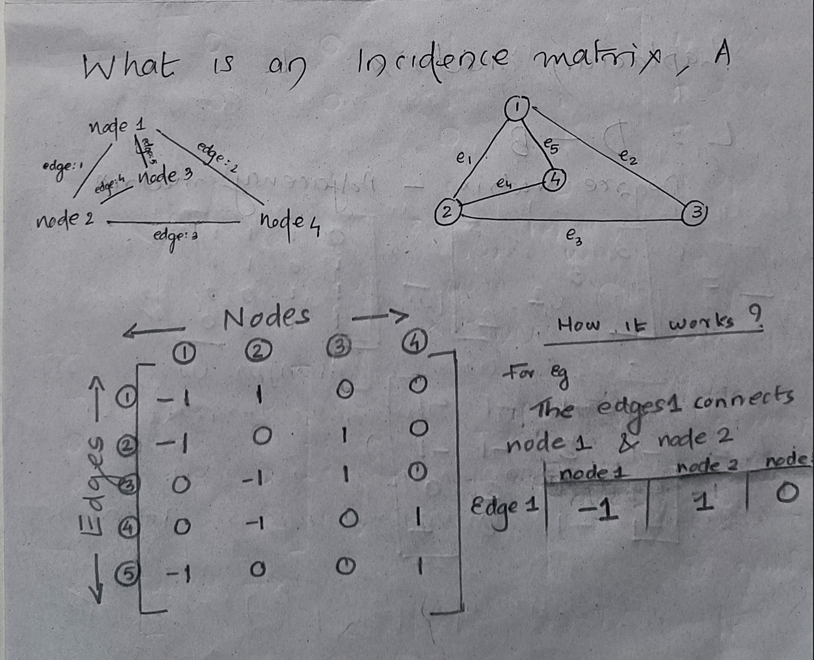 What is an Incidence matrix, A
node 1
edge:1
edge:2
edge:5
edge:4
node 3
node 2
node 4
edge:3
1
e1
e5
e2
e4
4
2
3
e3
← Nodes →
1 2 3 4
← Edges →
1 -1 1 0 0
2 -1 0 1 0
3 0 -1 1 0
4 0 -1 0 1
5 -1 0 0 1
How it works?
For eg
The edges1 connects
node 1 & node 2
node 1 node 2 node
Edge 1 -1 1 0